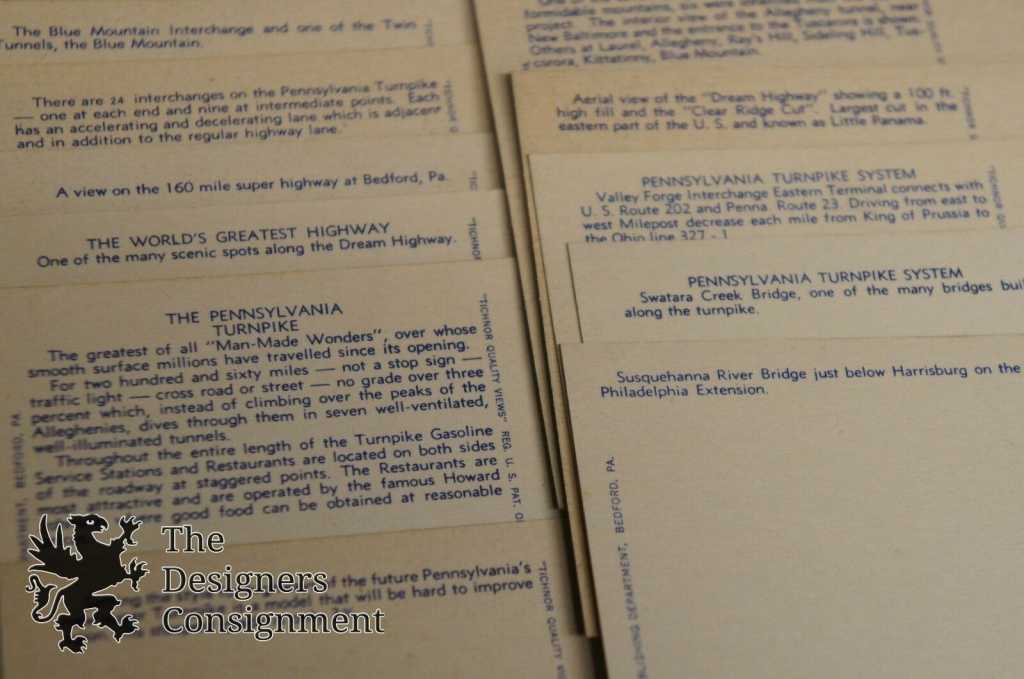 The Blue Mountain Interchange and one of the Twin
Tunnels, the Blue Mountain.
There are 24 interchanges on the Pennsylvania Turnpike
— one at each end and nine at intermediate points. Each
has an accelerating and decelerating lane which is adjacent
and in addition to the regular highway lane.
A view on the 160 mile super highway at Bedford, Pa.
THE WORLD'S GREATEST HIGHWAY
One of the many scenic spots along the Dream Highway.
TICHNOR
THE PENNSYLVANIA
TURNPIKE
The greatest of all "Man-Made Wonders", over whose
smooth surface millions have travelled since its opening.
For two hundred and sixty miles — not a stop sign —
traffic light — cross road or street — no grade over three
percent which, instead of climbing over the peaks of the
Alleghenies, dives through them in seven well-ventilated,
well-illuminated tunnels.
Throughout the entire length of the Turnpike Gasoline
Service Stations and Restaurants are located on both sides
of the roadway at staggered points. The Restaurants are
most attractive and are operated by the famous Howard
good food can be obtained at reasonable
"TICHNOR QUALITY VIEWS" REG. U. S. PAT.
BEDFORD, PA
of the future Pennsylvania's
model that will be hard to improve
"TICHNOR QUALITY
formidable mountains, six were
project. The interior view of the Allegheny tunnel, near
New Baltimore and the entrance to the is shown.
Others at Laurel, Allegheny, Ray's Hill, Sideling Hill, Tus-
carora, Kittatinny, Blue Mountain.
Aerial view of the "Dream Highway" showing a 100 ft.
high fill and the "Clear Ridge Cut". Largest cut in the
eastern part of the U. S. and known as Little Panama.
PENNSYLVANIA TURNPIKE SYSTEM
Valley Forge Interchange Eastern Terminal connects with
U. S. Route 202 and Penna. Route 23. Driving from east to
west Milepost decrease each mile from King of Prussia to
the Ohio line 327 - 1
PENNSYLVANIA TURNPIKE SYSTEM
Swatara Creek Bridge, one of the many bridges buil
along the turnpike.
Susquehanna River Bridge just below Harrisburg on the
Philadelphia Extension.
BLISHING DEPARTMENT, BEDFORD, PA.
The
Designers
Consignment